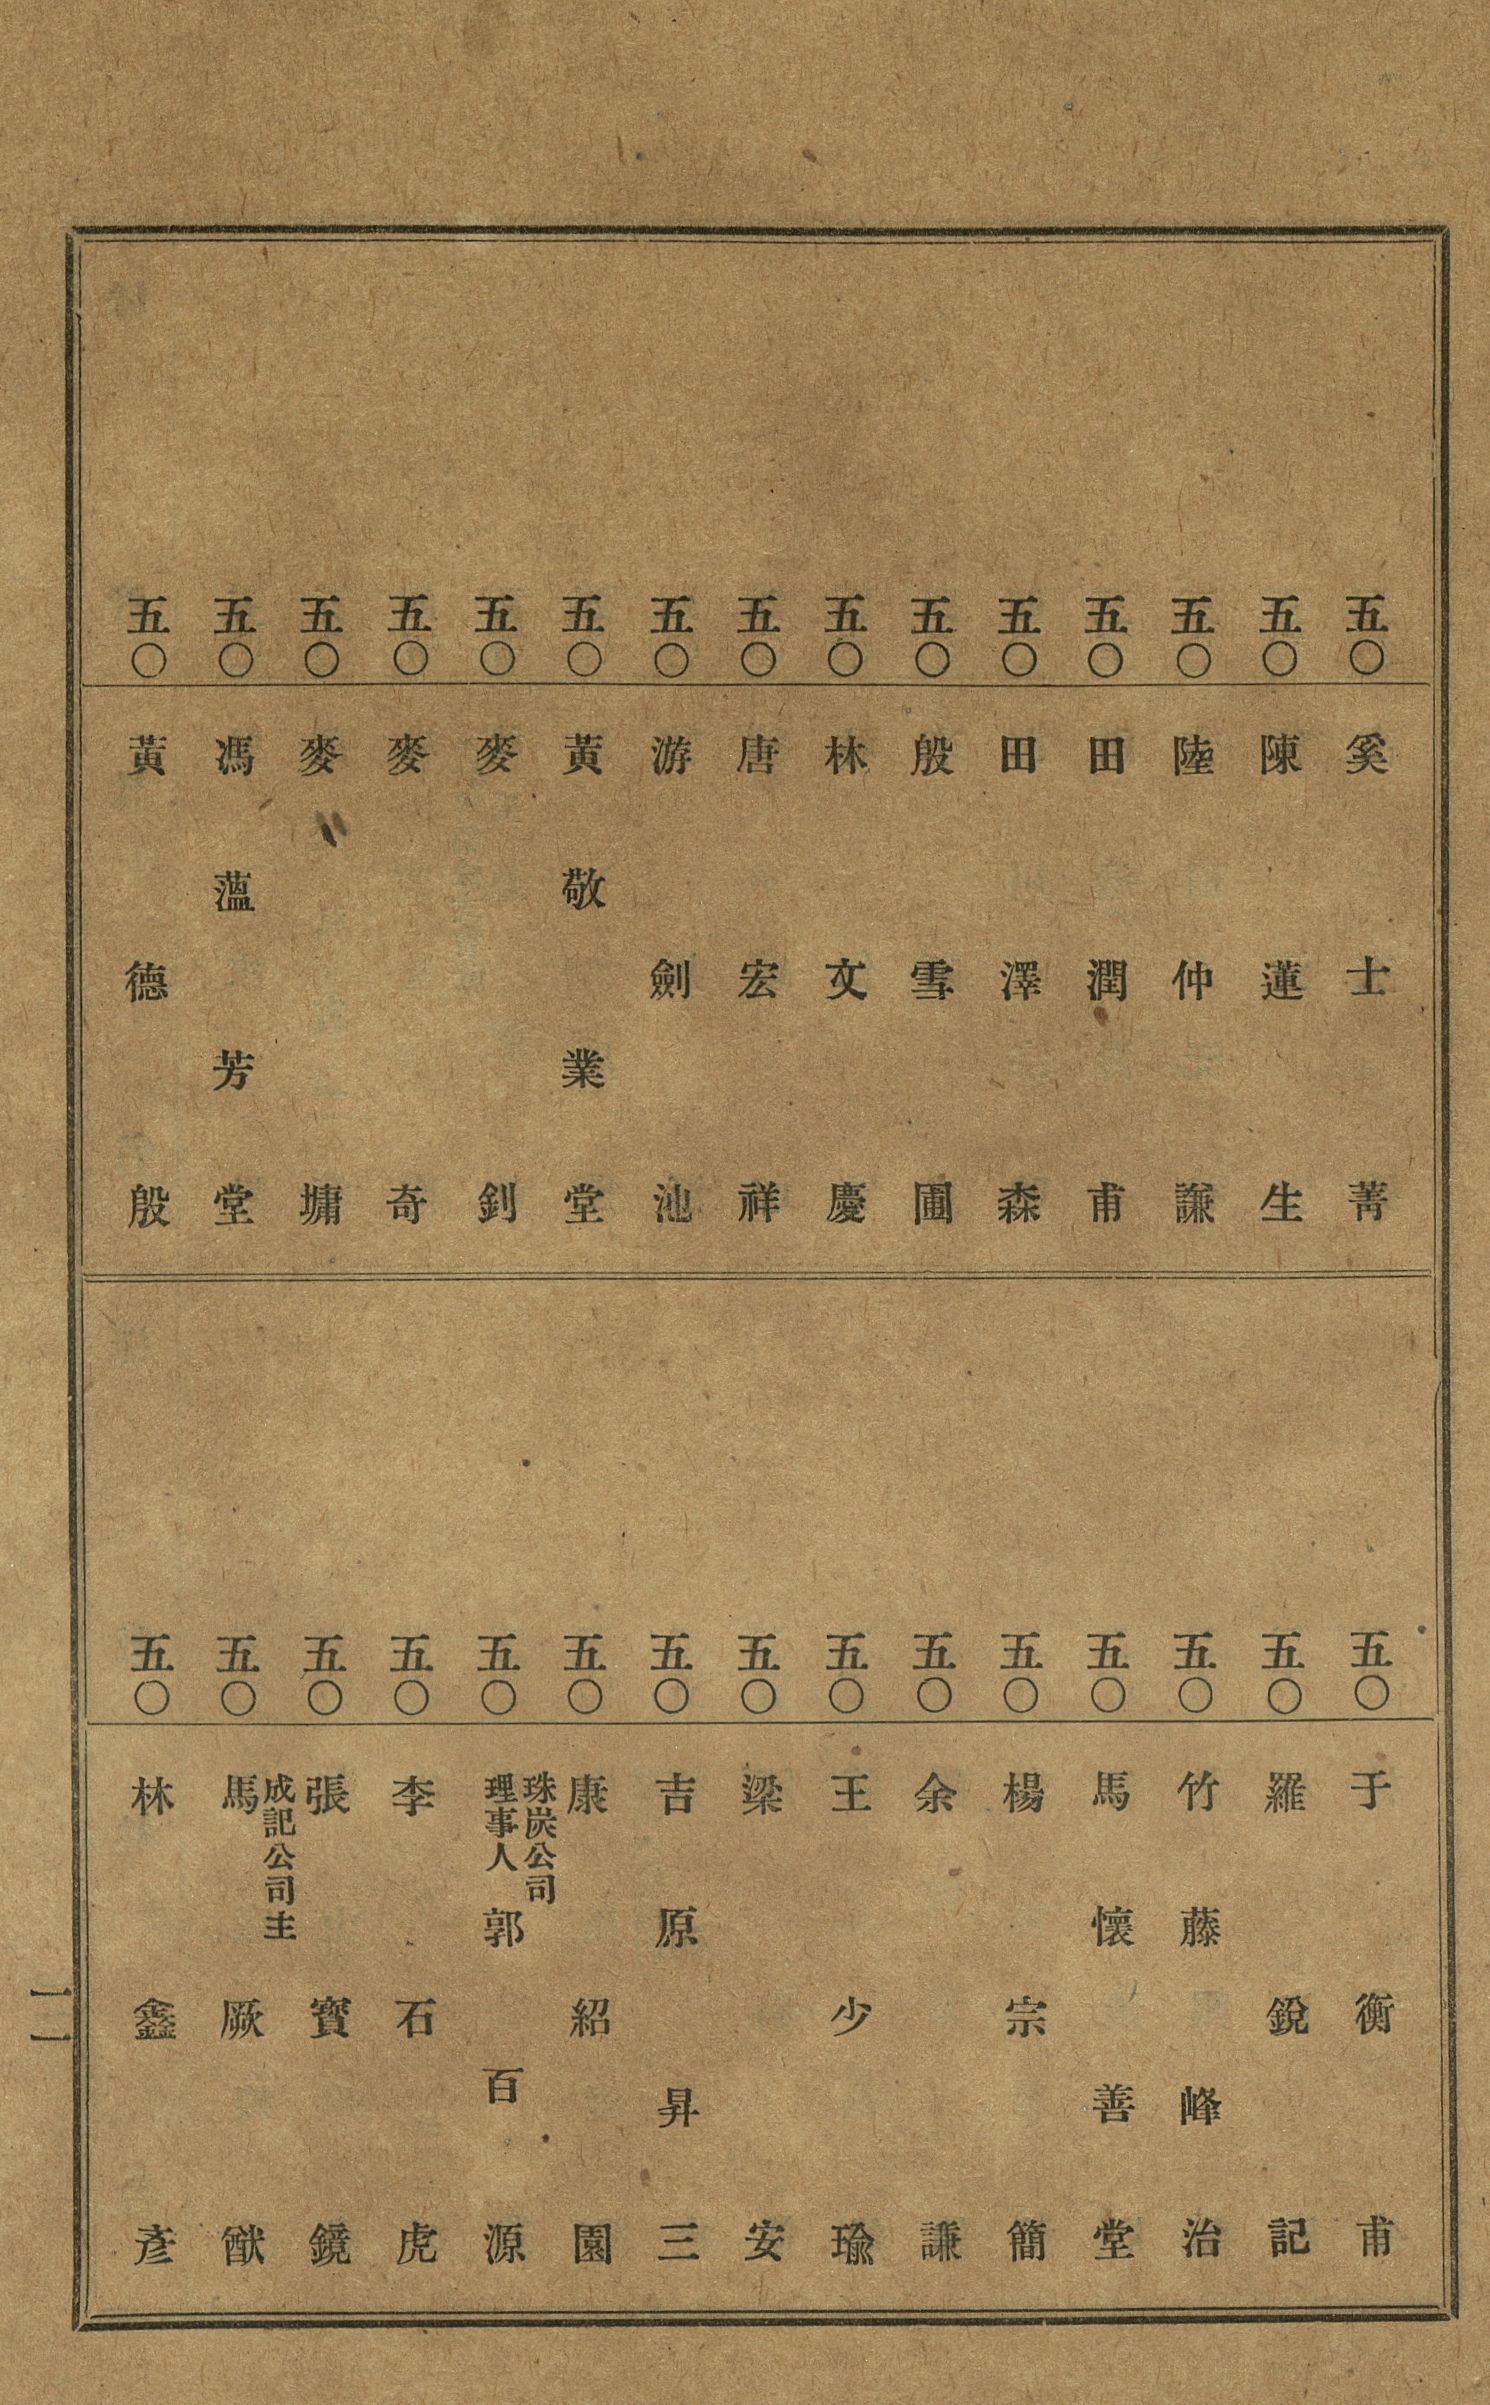 五〇 奚士菁
五〇 陳蓮生
五〇 陸仲謙
五〇 田潤甫
五〇 田澤森
五〇 殷雪圃
五〇 林文慶
五〇 唐宏祥
五〇 游劍池
五〇 黃敬業堂
五〇 麥釗
五〇 麥奇
五〇 麥墉
五〇 馮薀芳堂
五〇 黃德殷
五〇 于衡甫
五〇 羅銳記
五〇 竹藤峰治
五〇 馬懷善堂
五〇 楊宗簡
五〇 余謙
五〇 王少瑜
五〇 梁安
五〇 吉原昇三
五〇 康紹園
五〇 珠炭公司理事人郭百源
五〇 李石虎
五〇 張寶鏡
五〇 成記公司主馬厥猷
五〇 林鑫彥
一一